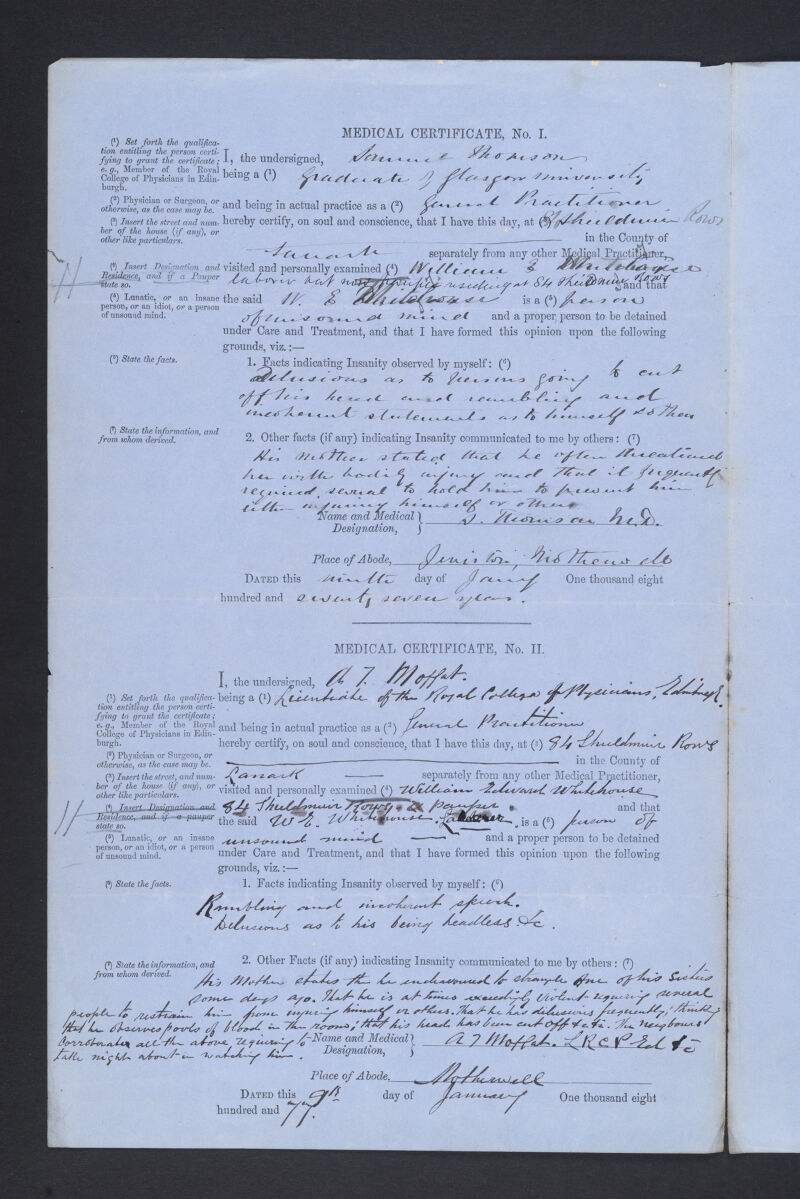 MEDICAL CERTIFICATE, No. I.
(¹) Set forth the qualifica-
tion entitling the person certi-
fying to grant the certificate;
e. g., Member of the Royal
College of Physicians in Edin-
burgh.
(²) Physician or Surgeon, or
otherwise, as the case may be.
(³) Insert the street and num-
ber of the house (if any), or
other like particulars.
(⁴) Insert Designation and
Residence, and if a Pauper
state so.
(⁵) Lunatic, or an insane
person, or an idiot, or a person
of unsound mind.
(⁶) State the facts.
(⁷) State the information, and
from whom derived.
I, the undersigned, Samuel Thomson
being a (¹) Graduate of Glasgow University
and being in actual practice as a (²) General Practitioner
hereby certify, on soul and conscience, that I have this day, at (³) 84 Shieldmuir Rows
in the County of
Lanark separately from any other Medical Practitioner,
visited and personally examined (⁴) William E Whitehouse
laborer but now pauper residing at 84 Shieldmuir Rows and that
the said W. E Whitehouse is a (⁵) person
of unsound mind and a proper person to be detained
under Care and Treatment, and that I have formed this opinion upon the following
grounds, viz.:—
1. Facts indicating Insanity observed by myself: (⁶)
Delusions as to persons going to cut
off his head and rambling and
incoherent statements as to himself & others
2. Other facts (if any) indicating Insanity communicated to me by others: (⁷)
His mother stated that he often threatened
her with bodily injury and that it frequently
required several to hold him to prevent him
either injuring himself or others
Name and Medical Designation, S. Thomson M.D.
Place of Abode, Motherwell
DATED this ninth day of Jany One thousand eight
hundred and seventy seven years.
MEDICAL CERTIFICATE, No. II.
(¹) Set forth the qualifica-
tion entitling the person certi-
fying to grant the certificate;
e. g., Member of the Royal
College of Physicians in Edin-
burgh.
(²) Physician or Surgeon, or
otherwise, as the case may be.
(³) Insert the street, and num-
ber of the house (if any), or
other like particulars.
(⁴) Insert Designation and
Residence, and if a pauper
state so.
(⁵) Lunatic, or an insane
person, or an idiot, or a person
of unsound mind.
(⁶) State the facts.
(⁷) State the information, and
from whom derived.
I, the undersigned, A T. Moffat.
being a (¹) Licentiate of the Royal College of Physicians, Edinburgh.
and being in actual practice as a (²) General Practitioner
hereby certify, on soul and conscience, that I have this day, at (³) 84 Shieldmuir Rows
in the County of
Lanark separately from any other Medical Practitioner,
visited and personally examined (⁴) William Edward Whitehouse
84 Shieldmuir Rows a pauper and that
the said W E. Whitehouse. Laborer. is a (⁵) person of
unsound mind and a proper person to be detained
under Care and Treatment, and that I have formed this opinion upon the following
grounds, viz.:—
1. Facts indicating Insanity observed by myself: (⁶)
Rambling and incoherent speech.
Delusions as to his being headless &c.
2. Other Facts (if any) indicating Insanity communicated to me by others: (⁷)
His Mother states th he endeavoured to strangle one of his Sisters
some days ago. That he is at times exceedingly violent requiring several
people to restrain him from injuring himself or others. That he has delusions frequently; thinking
that he observes pools of blood in the room; that his head has been cut off &c &c. The neighbours
corroborates all the above requiring to
take night about in watching him.
Name and Medical Designation, A T Moffat. LRCP Ed &c
Place of Abode, Motherwell
DATED this 9th day of January One thousand eight
hundred and 77.